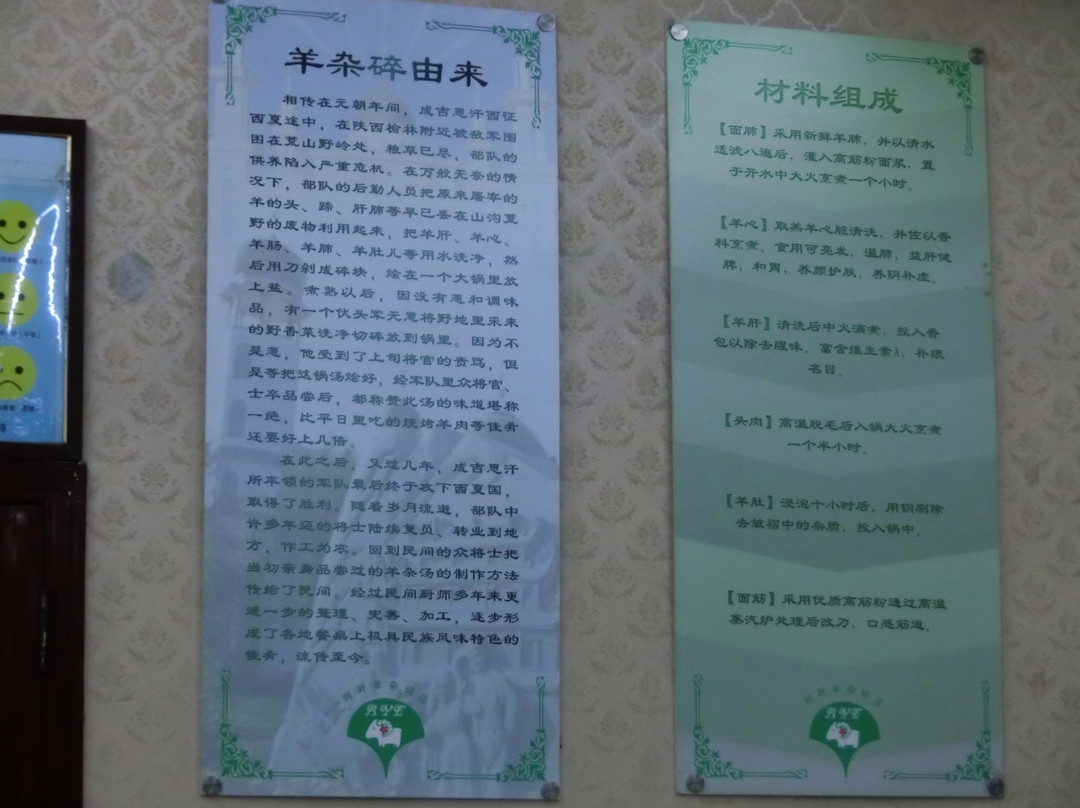 羊杂碎由来
相传在元朝年间，成吉思汗西征
西夏途中，在陕西榆林附近被敌军围
困在荒山野岭处，粮草已尽，部队的
供养陷入严重危机。在万般无奈的情
况下，部队的后勤人员把原来屠宰的
羊的头、蹄、肝肺等早已丢在山沟荒
野的废物利用起来，把羊肝、羊心、
羊肠、羊肺、羊肚儿等用水洗净，然
后用刀剁成碎块，烩在一个大锅里放
上盐。煮熟以后，因没有葱和调味
品，有一个伙头军无意将野地里采来
的野香菜洗净切碎放到锅里。因为不
是葱，他受到了上司将官的责骂，但
是等把这锅汤烩好，经军队里众将官、
士卒品尝后，都称赞此汤的味道堪称
一绝，比平日里吃的烧烤羊肉等佳肴
还要好上几倍。
在此之后，又过几年，成吉思汗
所率领的军队最后终于攻下西夏国，
取得了胜利。随着岁月流逝，部队中
许多年迈的将士陆续复员、转业到地
方，作工为农。回到民间的众将士把
当初亲身品尝过的羊杂汤的制作方法
传给了民间。经过民间厨师多年来更
进一步的整理、完善、加工，逐步形
成了各地餐桌上极具民族风味特色的
佳肴，流传至今。
材料组成
【面肺】采用新鲜羊肺，并以清水
适滤八遍后，灌入高筋粉面浆，置
于开水中大火烹煮一个小时。
【羊心】取羔羊心脏清洗，并佐以香
料烹煮，食用可亮发，温肺，益肝健
脾，和胃，养颜护肤，养阴补虚。
【羊肝】清洗后中火满煮，投入香
包以除去腥味，富含维生素A，补眼
名目。
【头肉】高温脱毛后入锅大火烹煮
一个半小时。
【羊肚】浸泡十小时后，用钢刷除
去皱褶中的杂质，投入锅中。
【面筋】采用优质高筋粉通过高温
蒸汽炉处理后改刀，口感筋道。